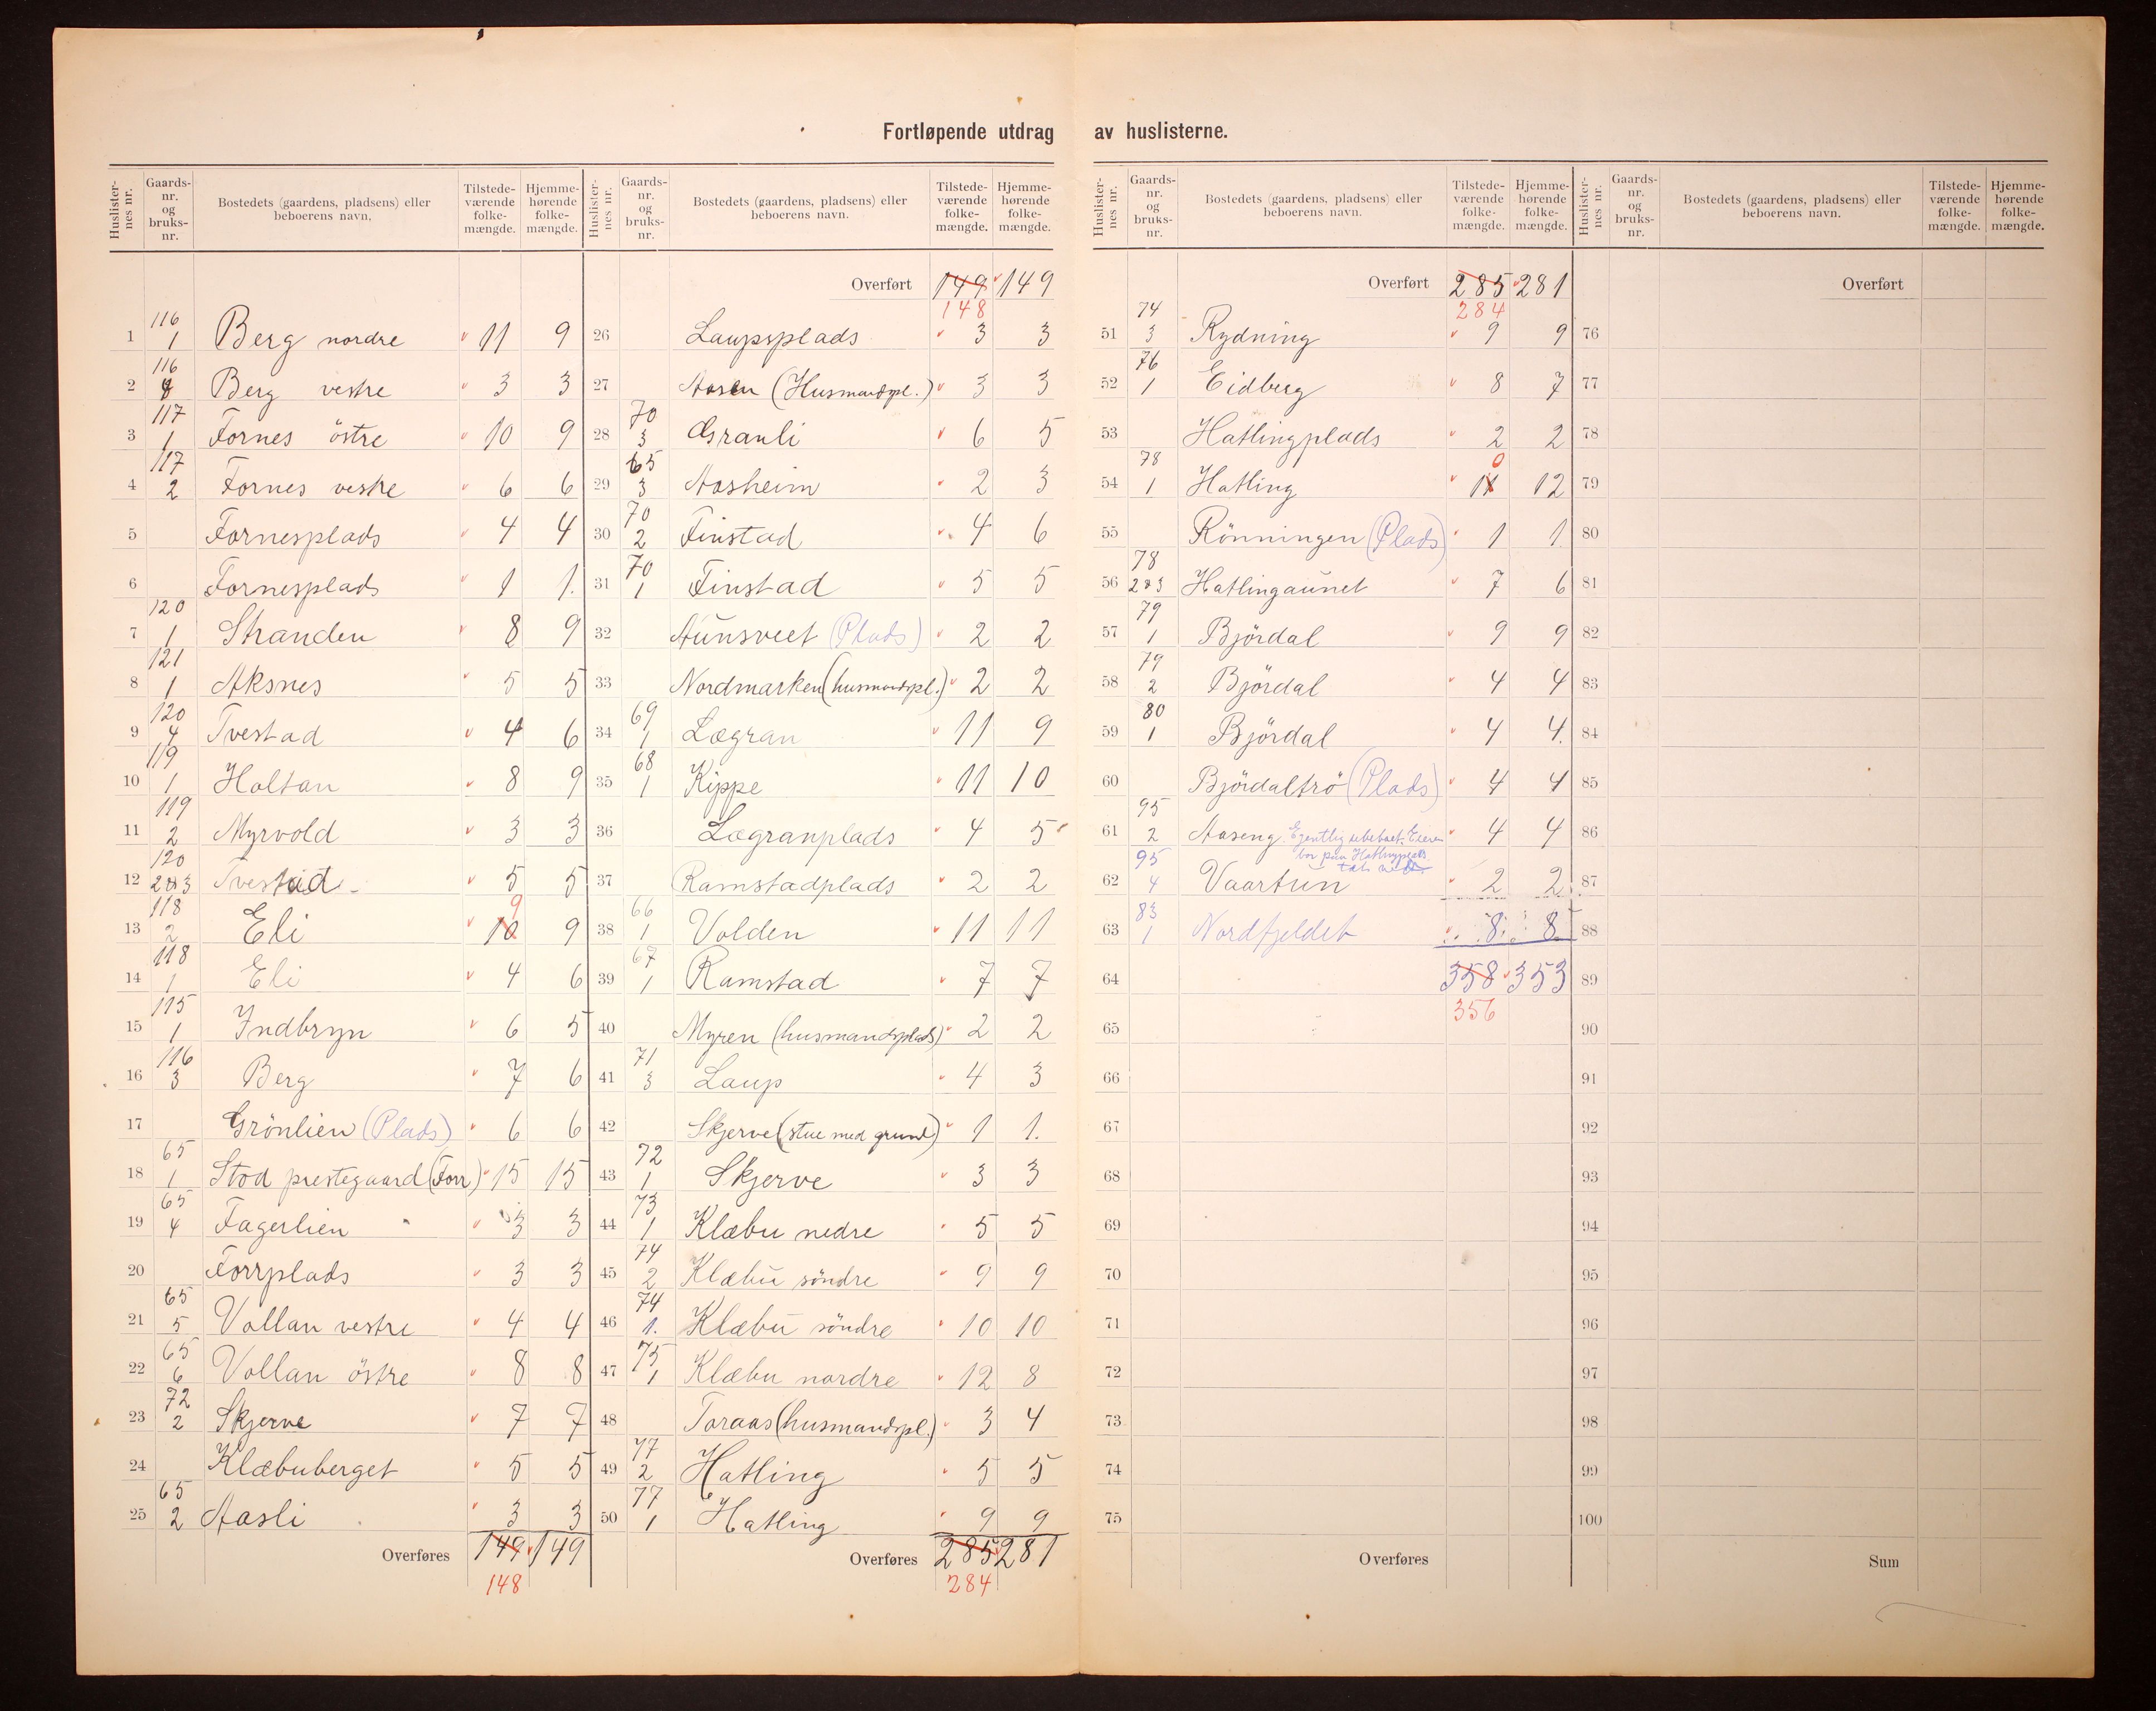 Fortløpende utdrag av huslisterne.
Huslisternes nr. Gaards-nr. og bruks-nr. Bostedets (gaardens, pladsens) eller beboerens navn. Tilstedeværende folkemængde. Hjemmehørende folkemængde.
1 116 1 Berg nordre 11 9
2 116 Berg vestre 3 3
3 117 1 Fornes östre 10 9
4 117 2 Fornes vestre 6 6
5 Fornesplads 4 4
6 Fornesplads 1 1.
7 120 1 Stranden 8 9
8 121 1 Aksnes 5 5
9 120 4 Tvestad 4 6
10 119 1 Holtan 8 9
11 119 2 Myrvold 3 3
12 120 2&3 Tvestad 5 5
13 118 2 Eli 10 9 9
14 118 1 Eli 4 6
15 115 1 Indbryn 6 5
16 116 3 Berg 7 6
17 Grönlien (Plads) 6 6
18 65 1 Stod prestegaard (Forr) 15 15
19 65 4 Fagerlien " 3 3
20 Forrplads 3 3
21 65 5 Vollan vestre 4 4
22 65 6 Vollan östre 8 8
23 72 2 Skjerve 7 7
24 Klæbuberget 5 5
25 65 2 Aasli 3 3
Overføres 149 149
148
Huslisternes nr. Gaards-nr. og bruks-nr. Bostedets (gaardens, pladsens) eller beboerens navn. Tilstedeværende folkemængde. Hjemmehørende folkemængde.
Overført 149 149
148
26 Laupsplads 3 3
27 Aasen (Husmandspl.) 3 3
28 70 3 Granli 6 5
29 65 3 Aasheim 2 3
30 70 2 Finstad 4 6
31 70 1 Finstad 5 5
32 Aunsveet (Plads) 2 2
33 Nordmarken (husmandspl.) 2 2
34 69 1 Lægran 11 9
35 68 1 Kippe 11 10
36 Lægranplads 4 5
37 Ramstadplads 2 2
38 66 1 Volden 11 11
39 67 1 Ramstad 7 7
40 Myren (husmandsplads) 2 2
41 71 3 Laup 4 3
42 Skjerve (stue med grund) 1 1.
43 72 1 Skjerve 3 3
44 73 1 Klæbu nedre 5 5
45 74 2 Klæbu söndre 9 9
46 74 1. Klæbu söndre 10 10
47 75 1 Klæbu nordre 12 8
48 Toraas (husmandspl.) 3 4
49 77 2 Hatling 5 5
50 77 1 Hatling 9 9
Overføres 285 281
284
Huslisternes nr. Gaards-nr. og bruks-nr. Bostedets (gaardens, pladsens) eller beboerens navn. Tilstedeværende folkemængde. Hjemmehørende folkemængde.
Overført 285 281
284
51 74 3 Rydning 9 9
52 76 1 Eidberg 8 7
53 Hatlingplads 2 2
54 78 1 Hatling 11 0 12
55 Rönningen (Plads) 1 1.
56 78 2&3 Hatlingaunet 7 6
57 79 1 Björdal 9 9
58 79 2 Björdal 4 4
59 80 1 Björdal 4 4.
60 Björdaltrö (Plads) 4 4
61 95 2 Aaseng. Egentlig ubeboet. Eieren 4 4
bor paa Hatlingplads
62 95 4 Vaartun 2 2
63 83 1 Nordfjeldet 8 8
64 358 353
356
65
66
67
68
69
70
71
72
73
74
75
Overføres
Huslisternes nr. Gaards-nr. og bruks-nr. Bostedets (gaardens, pladsens) eller beboerens navn. Tilstedeværende folkemængde. Hjemmehørende folkemængde.
Overført
76
77
78
79
80
81
82
83
84
85
86
87
88
89
90
91
92
93
94
95
96
97
98
99
100
Sum